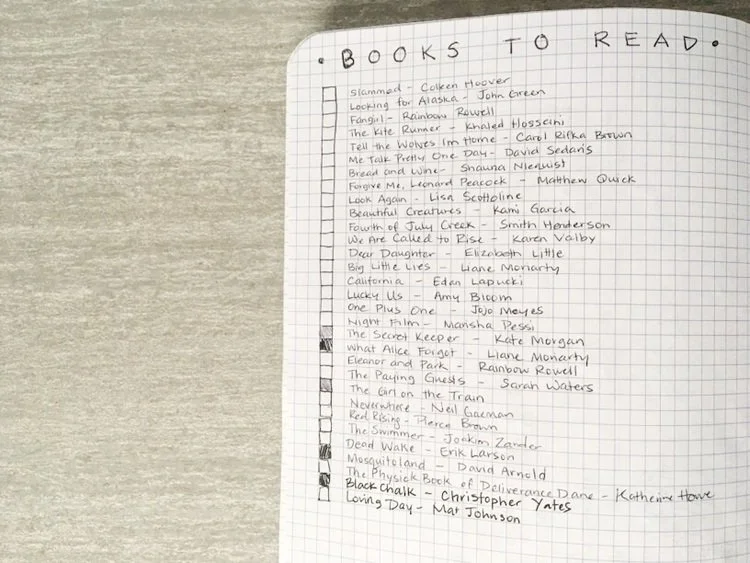 • BOOKS TO READ •
Slammed - Colleen Hoover
Looking for Alaska - John Green
Fangirl - Rainbow Rowell
The Kite Runner - Khaled Hosseini
Tell the Wolves Im Home - Carol Rifka Brown
Me Talk Pretty One Day - David Sedaris
Bread and Wine - Shauna Niequist
Forgive Me, Leonard Peacock - Matthew Quick
Look Again - Lisa Scottoline
Beautiful Creatures - Kami Garcia
Fourth of July Creek - Smith Henderson
We Are Called to Rise - Karen Valby
Dear Daughter - Elizabeth Little
Big Little Lies - Liane Moriarty
California - Edan Lapucki
Lucky Us - Amy Bloom
One Plus One - Jojo Meyes
Night Film - Marisha Pessi
The Secret Keeper - Kate Morgan
What Alice Forgot - Liane Moriarty
Eleanor and Park - Rainbow Rowell
The Paying Guests - Sarah Waters
The Girl on the Train
Neverwhere - Neil Gaeman
Red Rising - Pierce Brown
The Swimmer - Joakim Zander
Dead Wake - Erik Larson
Mosquitoland - David Arnold
The Physick Book of Deliverance Dane - Katherine Howe
Black Chalk - Christopher Yates
Loving Day - Mat Johnson